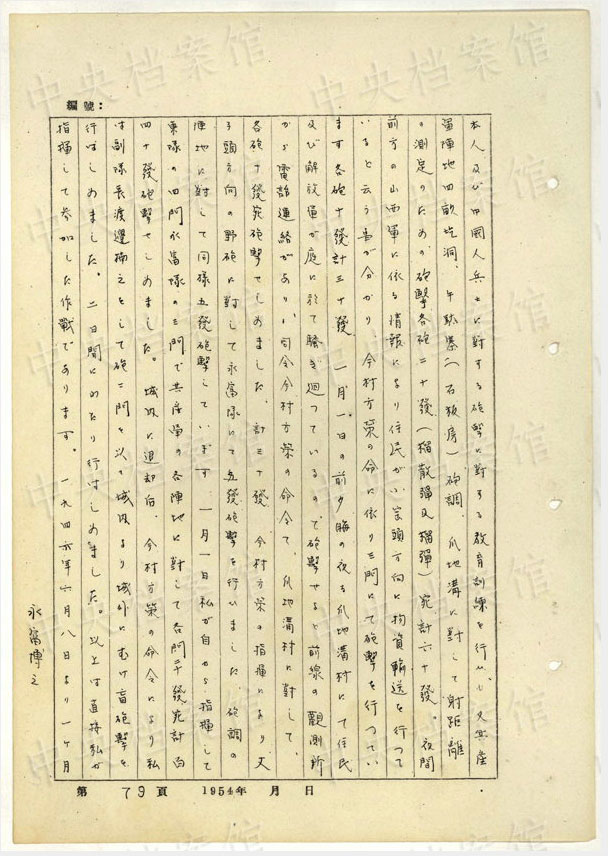 編號：
本人及び中国人兵士に対する砲撃に対する教育訓練を行ひ
陣地四畝圪洞、 砲調、爪地溝に対して射距離
の測定のため 砲撃各砲二十發（榴散弾及榴弾）宛計六十發。夜間
前方の山西軍に依る情報により住民が 頭方向に物資輸送を行つて
いると云う事が分かり、今村方策の命に依り三門にて砲撃を行つてい
ます各砲十發計三十發 一月一日の前夕晦の夜る爪地溝村にて住民
及び解放軍が庭に於て騒ぎ廻つているので砲撃せると前線の觀測所
から電話連絡があり、司令今村方策の命令で、爪地溝村に対して、
各砲十發宛砲撃せしめました、計三十發 今村方策の指揮により
頭方向の野砲に対して永富隊にて五發砲撃を行いました、砲調の
陣地に対して同様五發砲撃しています 一月一日私が自から指揮して
東隊の四門永富隊の三門で共産軍の各陣地に対して各門二十發宛計百
四十發砲撃せしめました。城内に退却后、今村方策の命令により私
は副隊長渡邊 として砲二門を以て城内より城外にむけ盲砲撃を
行はしめました。二日間にわたり行はしめました。以上は直接私が
指揮して参加した作戰であります。一九四六年六月八日より一ヶ月
永富博之
第 79 頁 1954年 月 日
中央档案馆